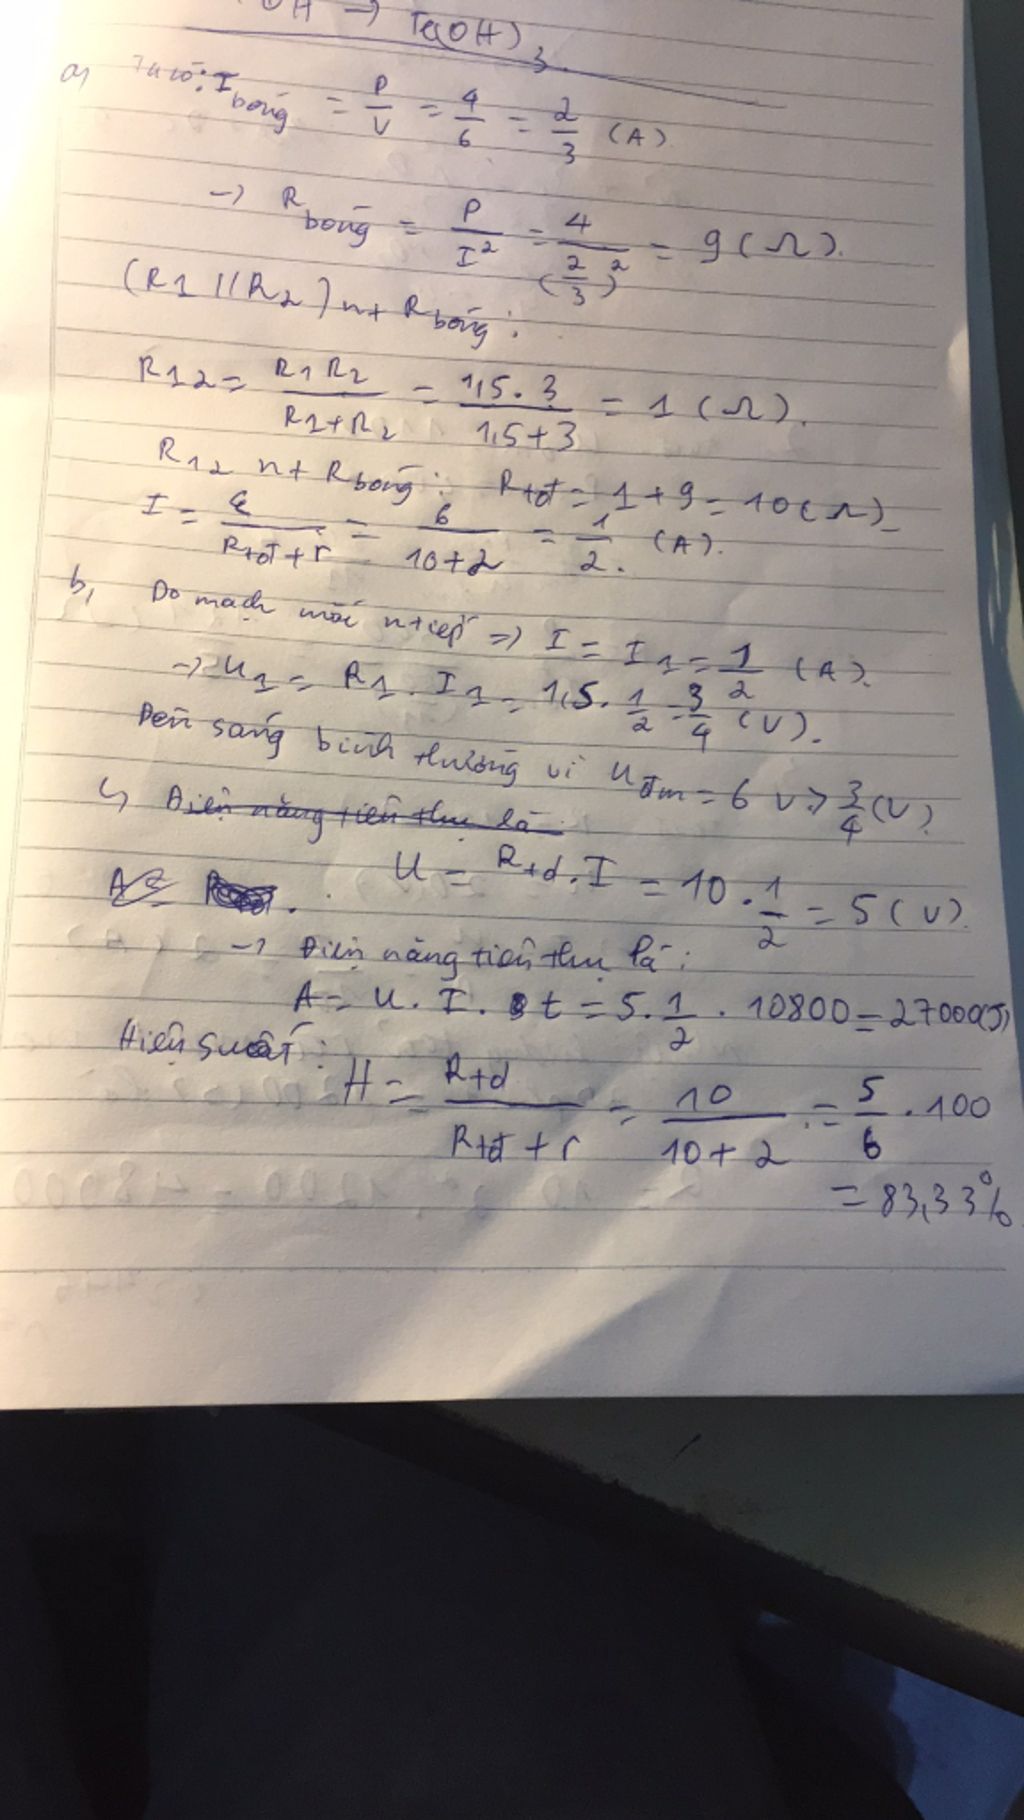 OH → Fe(OH)3
a) Ta có: I bóng = P/U = 4/6 = 2/3 (A)
→ R bóng = P/I² = 4/(2/3)² = 9 (Ω).
(R1 // R2) nt R bóng :
R12 = R1 R2/(R1+R2) = 1,5 . 3/(1,5+3) = 1 (Ω).
R12 nt R bóng : Rtđ = 1 + 9 = 10 (Ω)
I = ξ/(Rtđ + r) = 6/(10+2) = 1/2 (A).
b, Do mạch mắc ntiếp => I = I1 = 1/2 (A).
→ U1 = R1 . I1 = 1,5 . 1/2 = 3/4 (V).
Đèn sáng bình thường vì Uđm = 6 V > 3/4 (V).
c, Điện năng tiêu thụ là
A =
U = Rtđ . I = 10 . 1/2 = 5 (V)
→ Điện năng tiêu thụ là :
A = U . I . t = 5 . 1/2 . 10800 = 27000 (J)
Hiệu suất :
H = Rtđ/(Rtđ + r) = 10/(10 + 2) = 5/6 . 100
= 83,33%